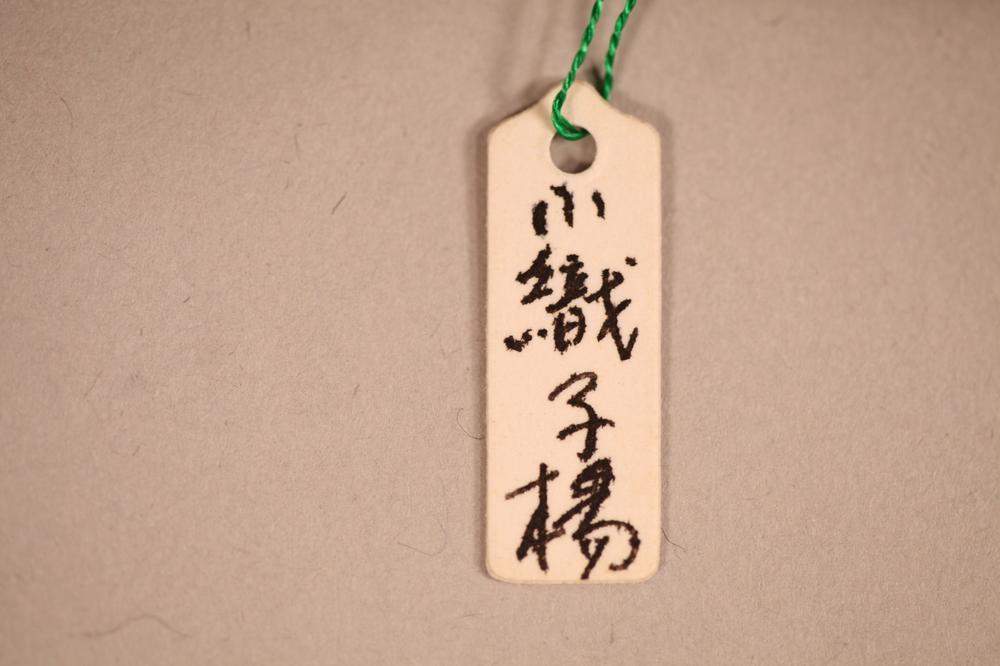 小織子楊